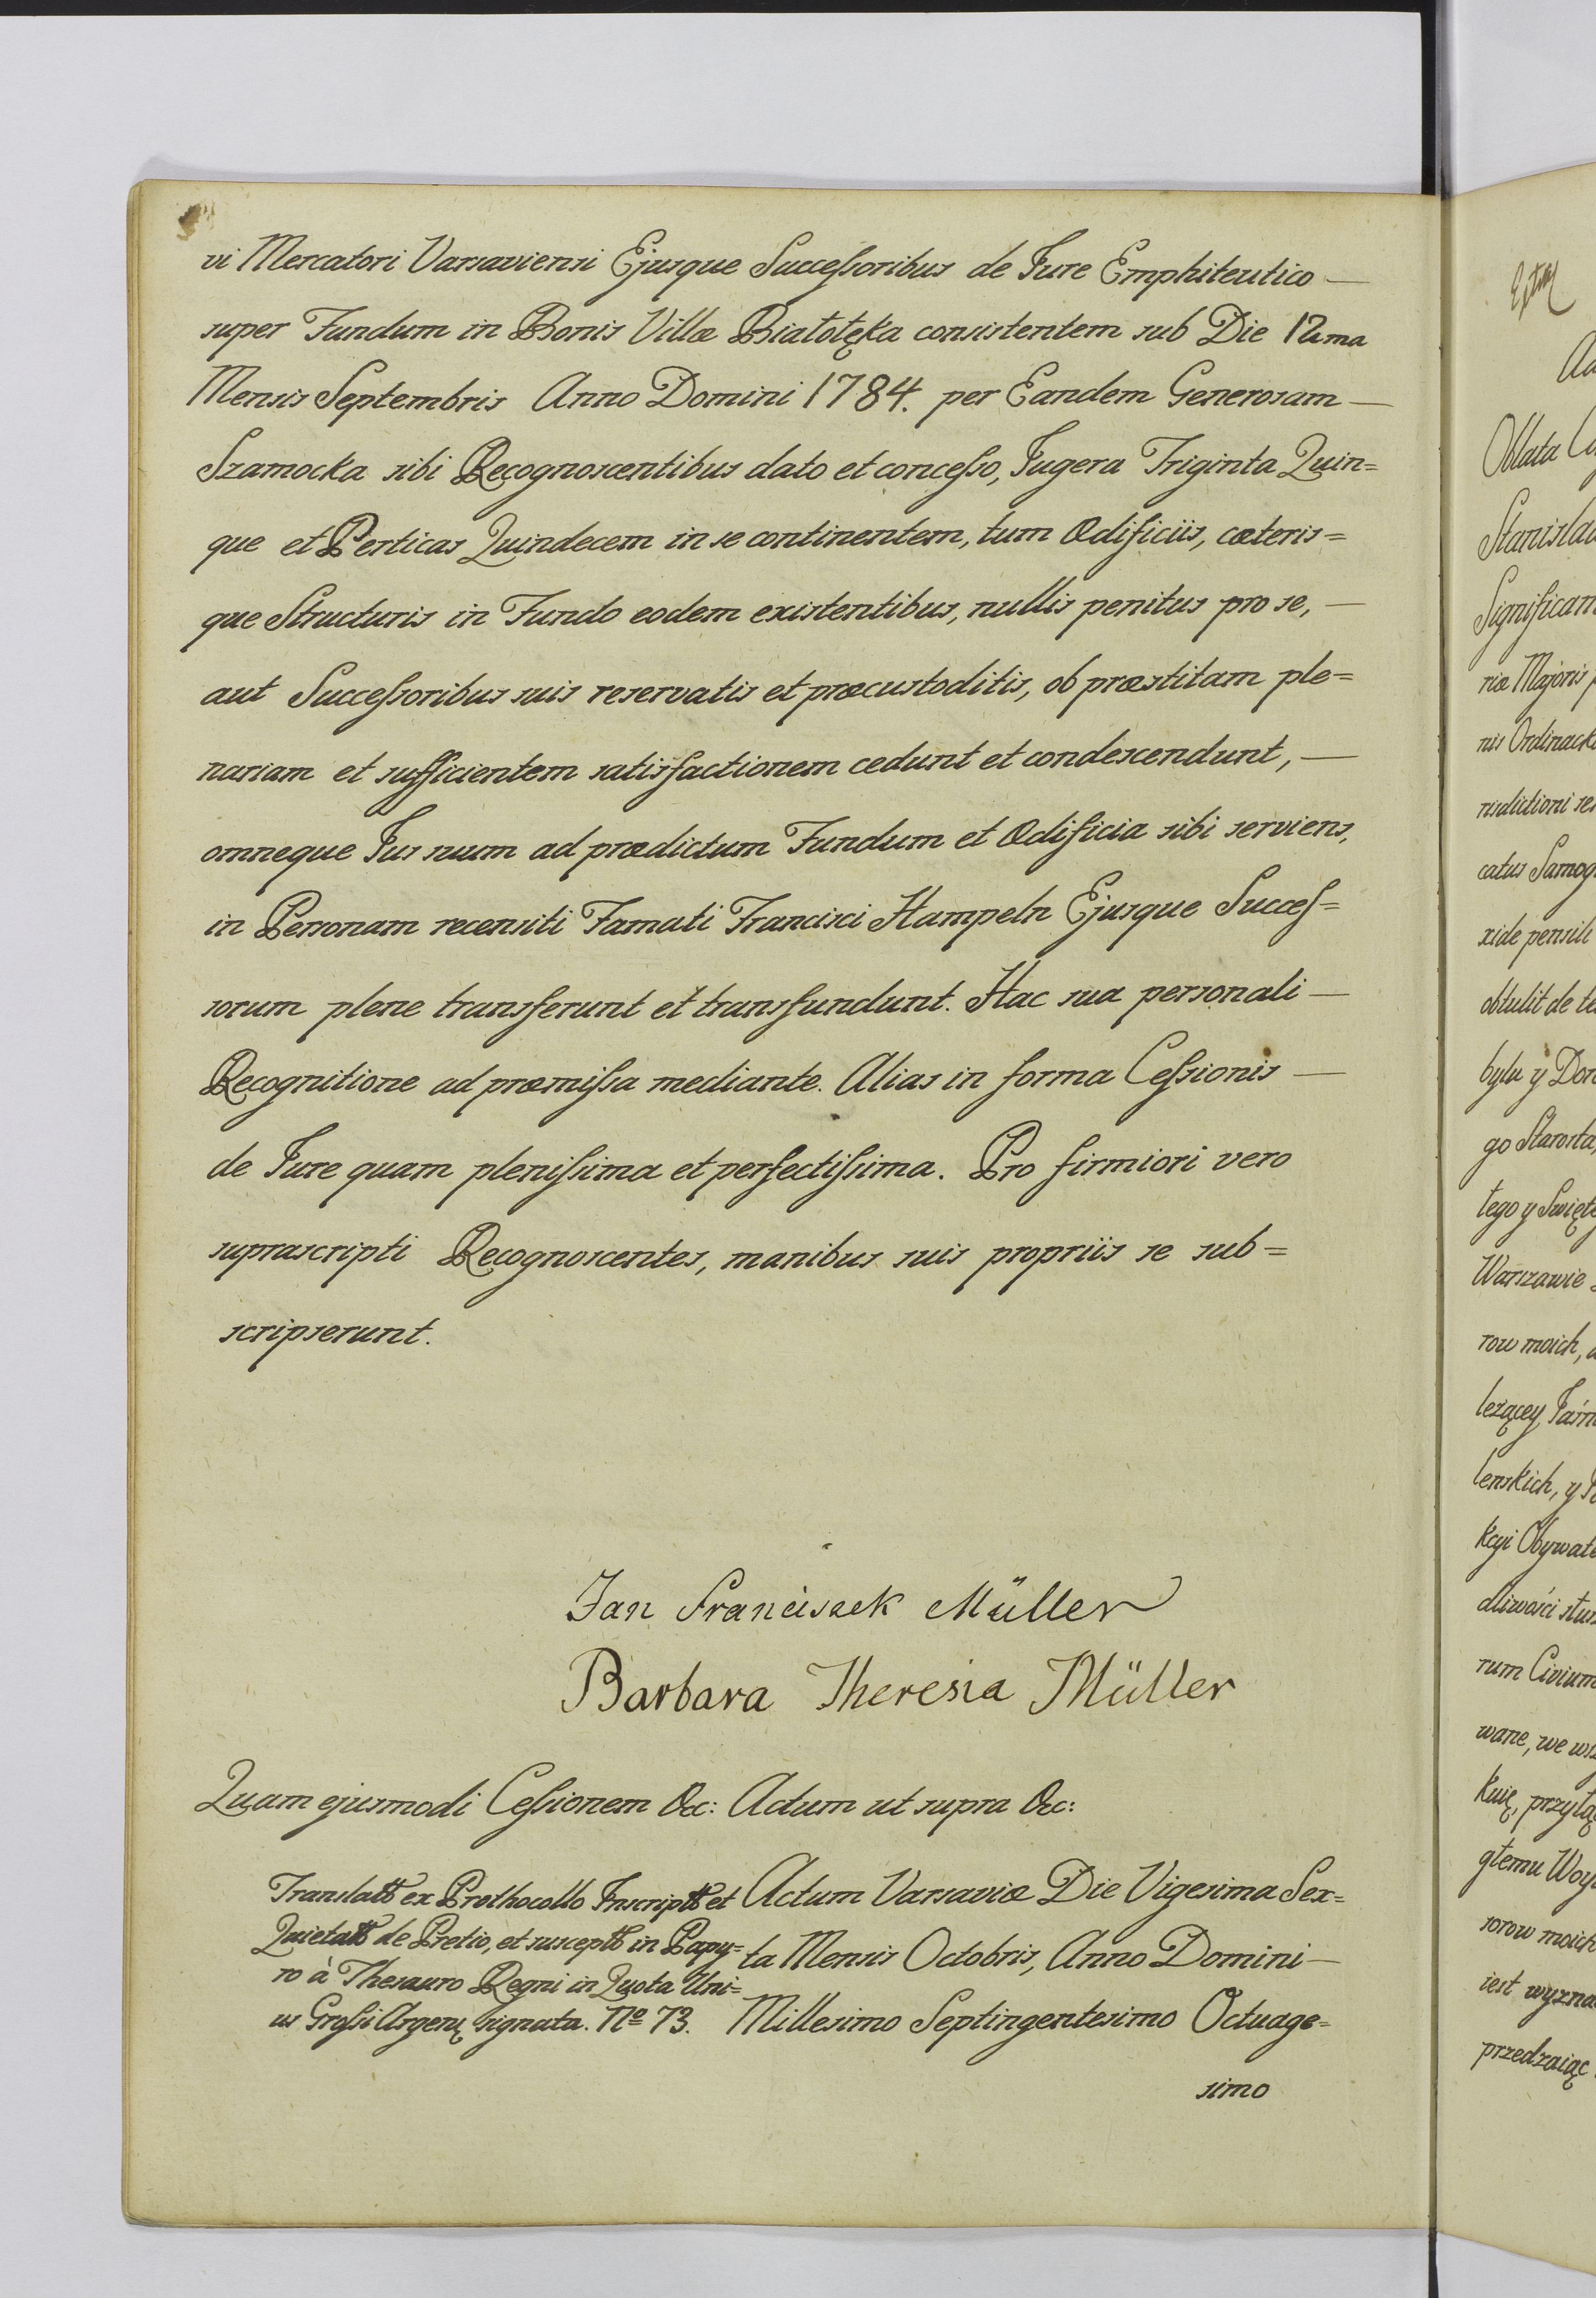 vi Mercatori Varsaviensi Ejusque Succeſsoribus de Jure Emphiteutico —
super Fundum in Bonis Villæ Białołęka consistentem sub Die 12ma
Mensis Septembris Anno Domini 1784. per Eandem Generosam —
Szamocka sibi Recognoscentibus dato et conceſso, Jugera Triginta Quin=
que et Perticas Quindecem in se continentem, tum Ædificiis, cæteris=
que Structuris in Fundo eodem existentibus, nullis penitus pro se, —
aut Succeſsoribus suis reservatis et præcustoditis, ob præstitam ple=
nariam et sufficientem satisfactionem cedunt et condescendunt, —
omneque Jus suum ad prædictum Fundum et Ædificia sibi serviens,
in Personam recensiti Famati Francisci Hampeln Ejusque Succeſ=
sorum plene transferunt et transfundunt. Hac sua personali —
Recognitione ad præmiſsa mediante. Alias in forma Ceſsionis —
de Jure quam pleniſsima et perfectiſsima. Pro firmiori vero
suprascripti Recognoscentes, manibus suis propriis se sub=
scripserunt.
Jan Franciszek Müller
Barbara Theresia Müller
Quam ejusmodi Ceſsionem &c: Actum ut supra &c:
Translatt ex Prothocollo Inscriptt et
Quietatt de Pretio, et susceptt in Papy=
ro à Thesauro Regni in Quota Uni=
us Groſsi Argen signata. No 73.
Actum Varsaviæ Die Vigesima Sex=
ta Mensis Octobris, Anno Domini —
Millesimo Septingentesimo Octuage=
simo
Oblata
Stanislau
Significan
riæ Majoris
nis Ordinack
risdictioni se
catus Samog
xide pensili
obtulit de
bylu y Dor
go Starosta,
tego y Swięte
Warszawie
row moich,
leżącey
lenskich, y
kcyi Obywate
dliwości
rum Civium
wane, we
kuię, przyłą
głemu Woy
sorow moich
iest wyzna
przedzaiąc